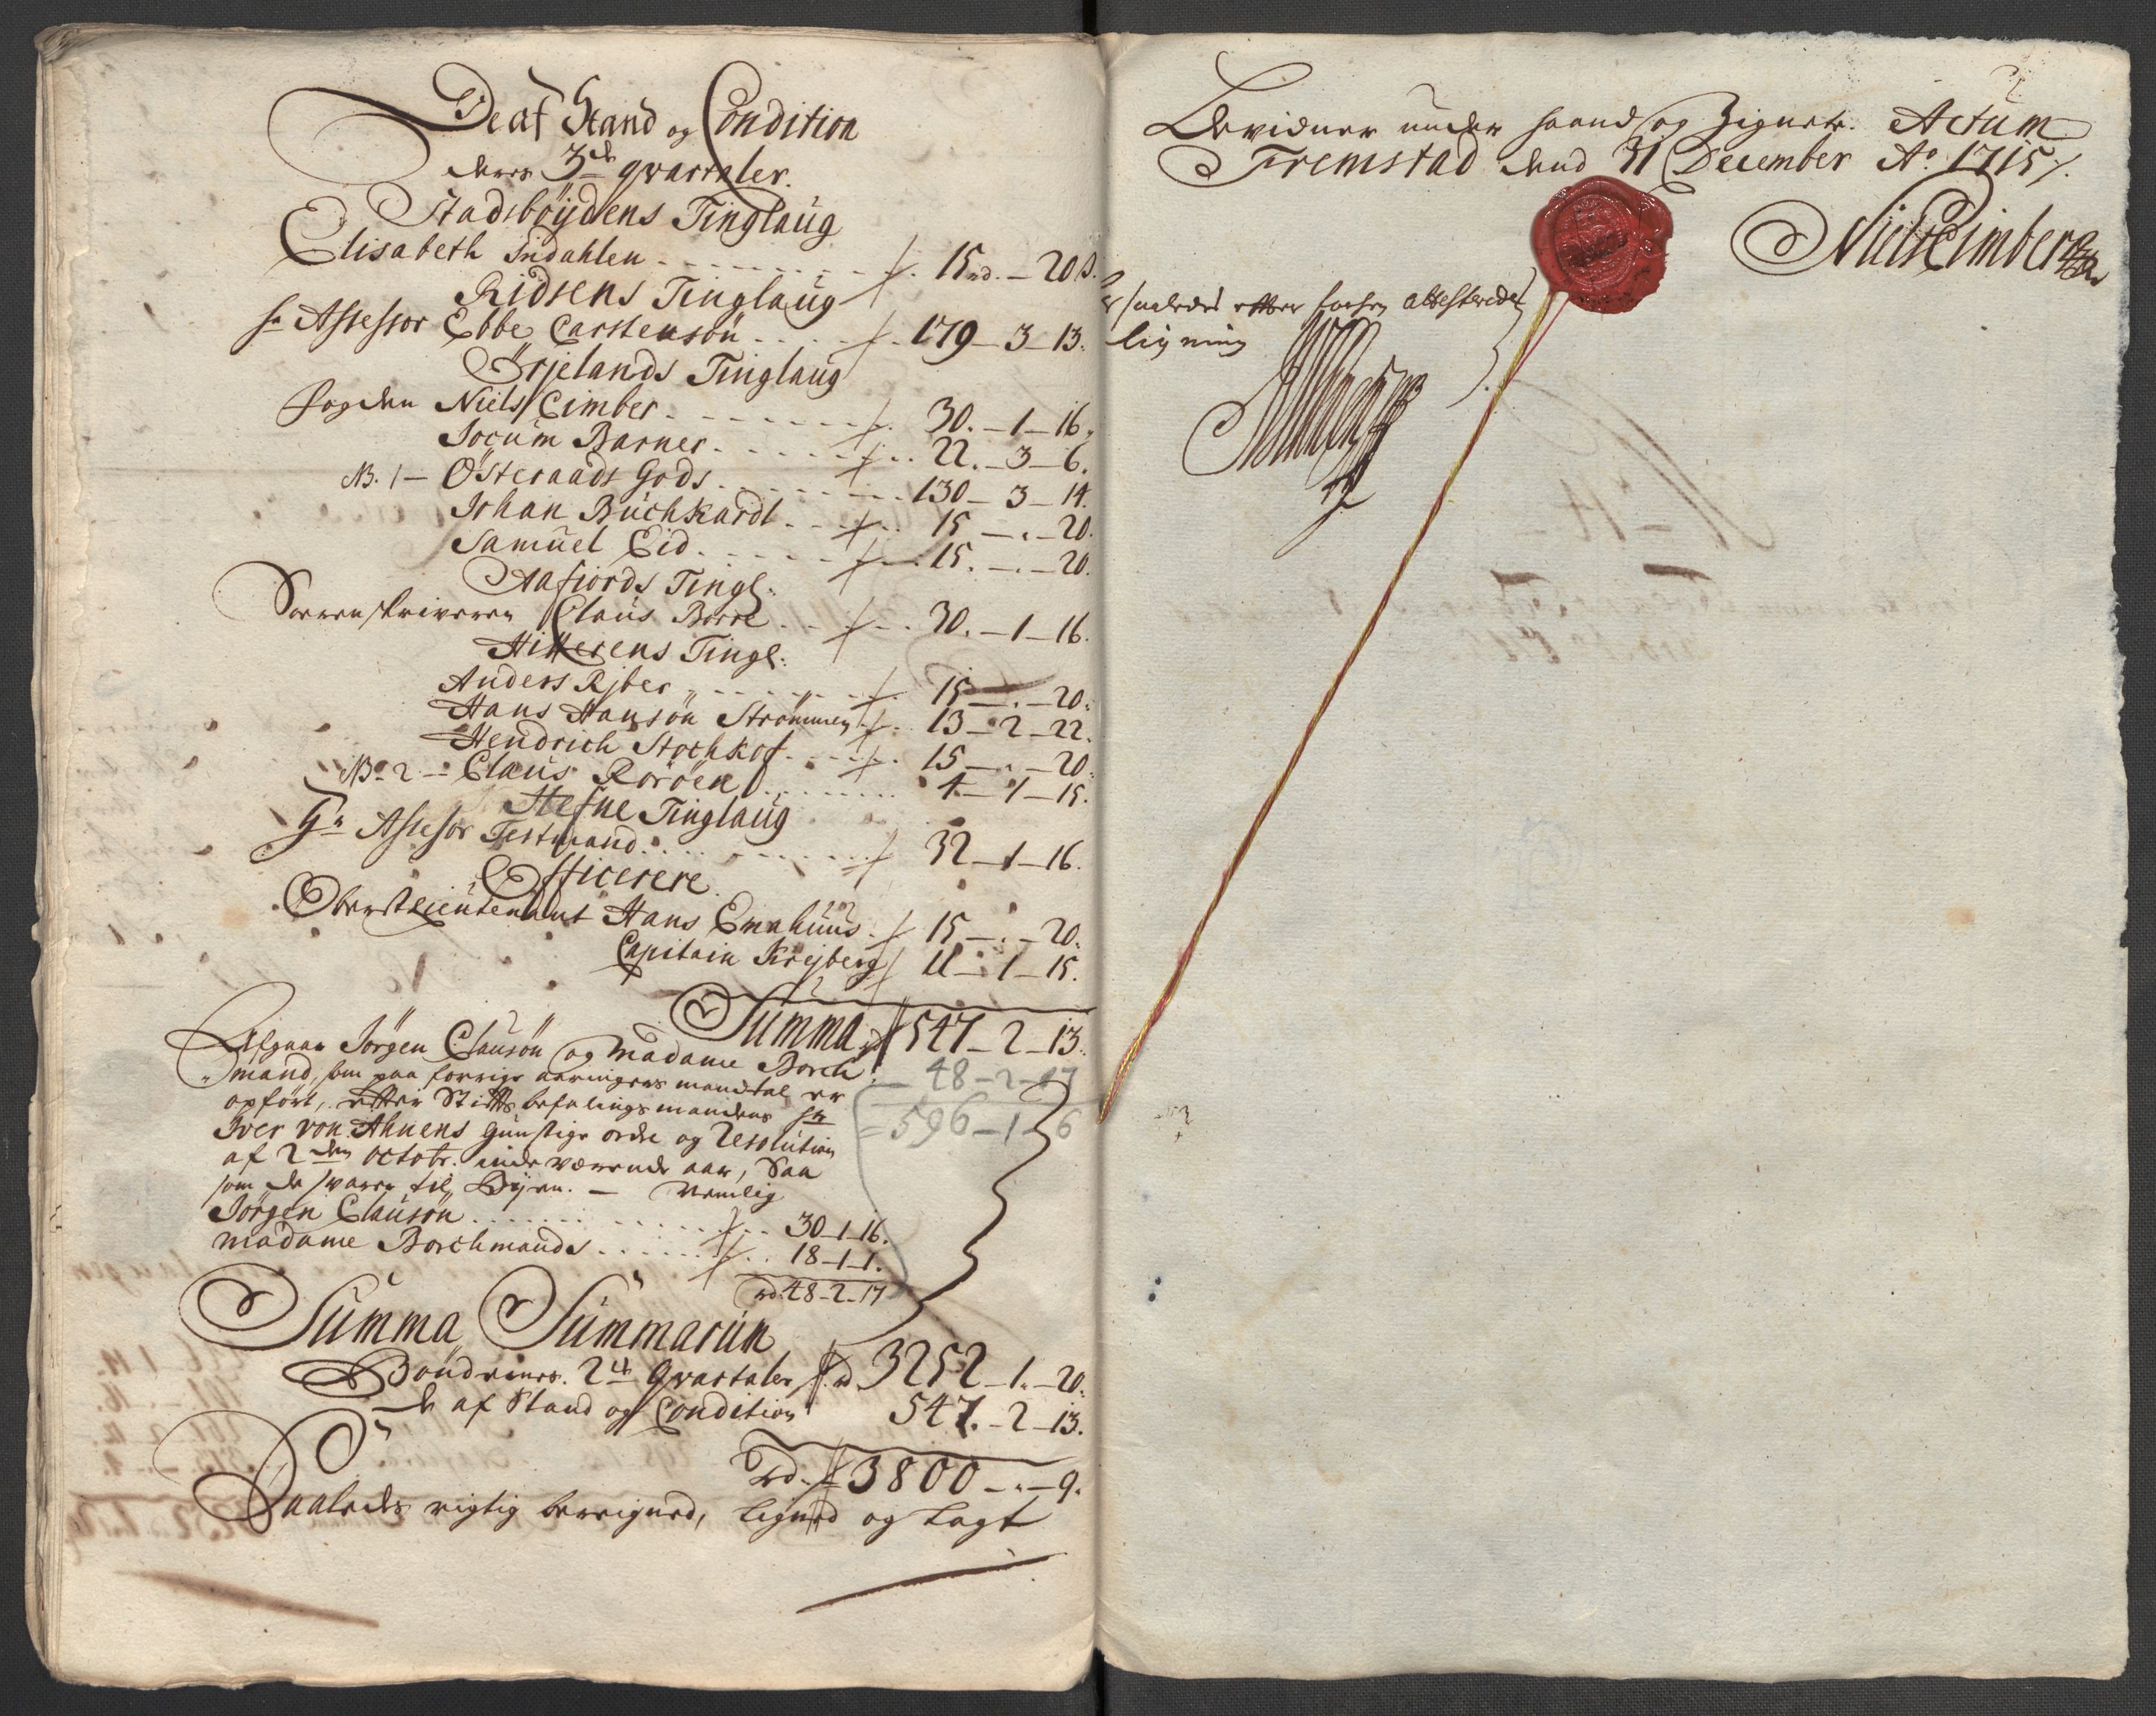 De af Stand og Condition
deres 3de qvartaler.
Stadsböÿdens Tinglaug
Elisabeth Indahlen - - - - 15 rd. - " - 20 s.
Ridsens Tinglaug
hr Assessor Ebbe Carstensön . . . . 179 - 3 - 13.
Örjelands Tinglaug
fogden Niels Cimber - - - - 30. - 1 - 16.
Jocum Barner - - - - 22. - 3 - 6.
NB. 1 - Österaads Gods - - - - 130 - 3 - 14.
Johan Büchkardt - - - - 15 - . - 20.
Samuel Eid - - - - 15. - . - 20.
Aafiords Tingl:
Sorrenskriveren Claus Borre - - - 30. - 1 - 16.
Hitterens Tingl:
Anders Rjber - - - - 15 - . - 20.
Hans Hansön Strömmen 13 - 2 - 22.
Hendrich Stochkof - - - 15 - . - 20.
No 2 - Claus Roröen - - - - 4 - 1 - 15.
Stefne Tinglaug
Hr Assessor Testmand - - - - 32 - 1 - 16.
Officerere
Oberstleüutenant Hans Emahuus 15 - . - 20.
Capitain Krejberg 11 - 1 - 15.
Summa rd 547 - 2 - 13.
Afgaar Jörgen Clausön og Madame Borch
mand, som paa forrige aaringers mandtal er 48 - 2 - 17
opfört, effter Stiftsbefalingsmandens hr 596 - 1 - 6
Iver von Ahnens gunstige ordre og Resolution
af 2den octobr. inderværende aar, Saa
som de svarer til Byen. - Nemlig
Jörgen Clausön . . . . 30 - 1 - 16.
madame Borchmands . . . . 18 - 1 - 1.
rd. 48 - 2 - 17
Summa Summarum
Böndernes 2de Qvartaler rd. 3252 - 1. - 20.
de af Stand og Condition 547. - 2 - 13.
Rd. 3800 - . - 9.
Saaledes rigtig beregned, ligned og lagt
Bevidner under haand og Zignete. Actum
Fremstad dend 31 December Ao 1715 /.
Niels Cimber
saaledes effter attesterede
ligning